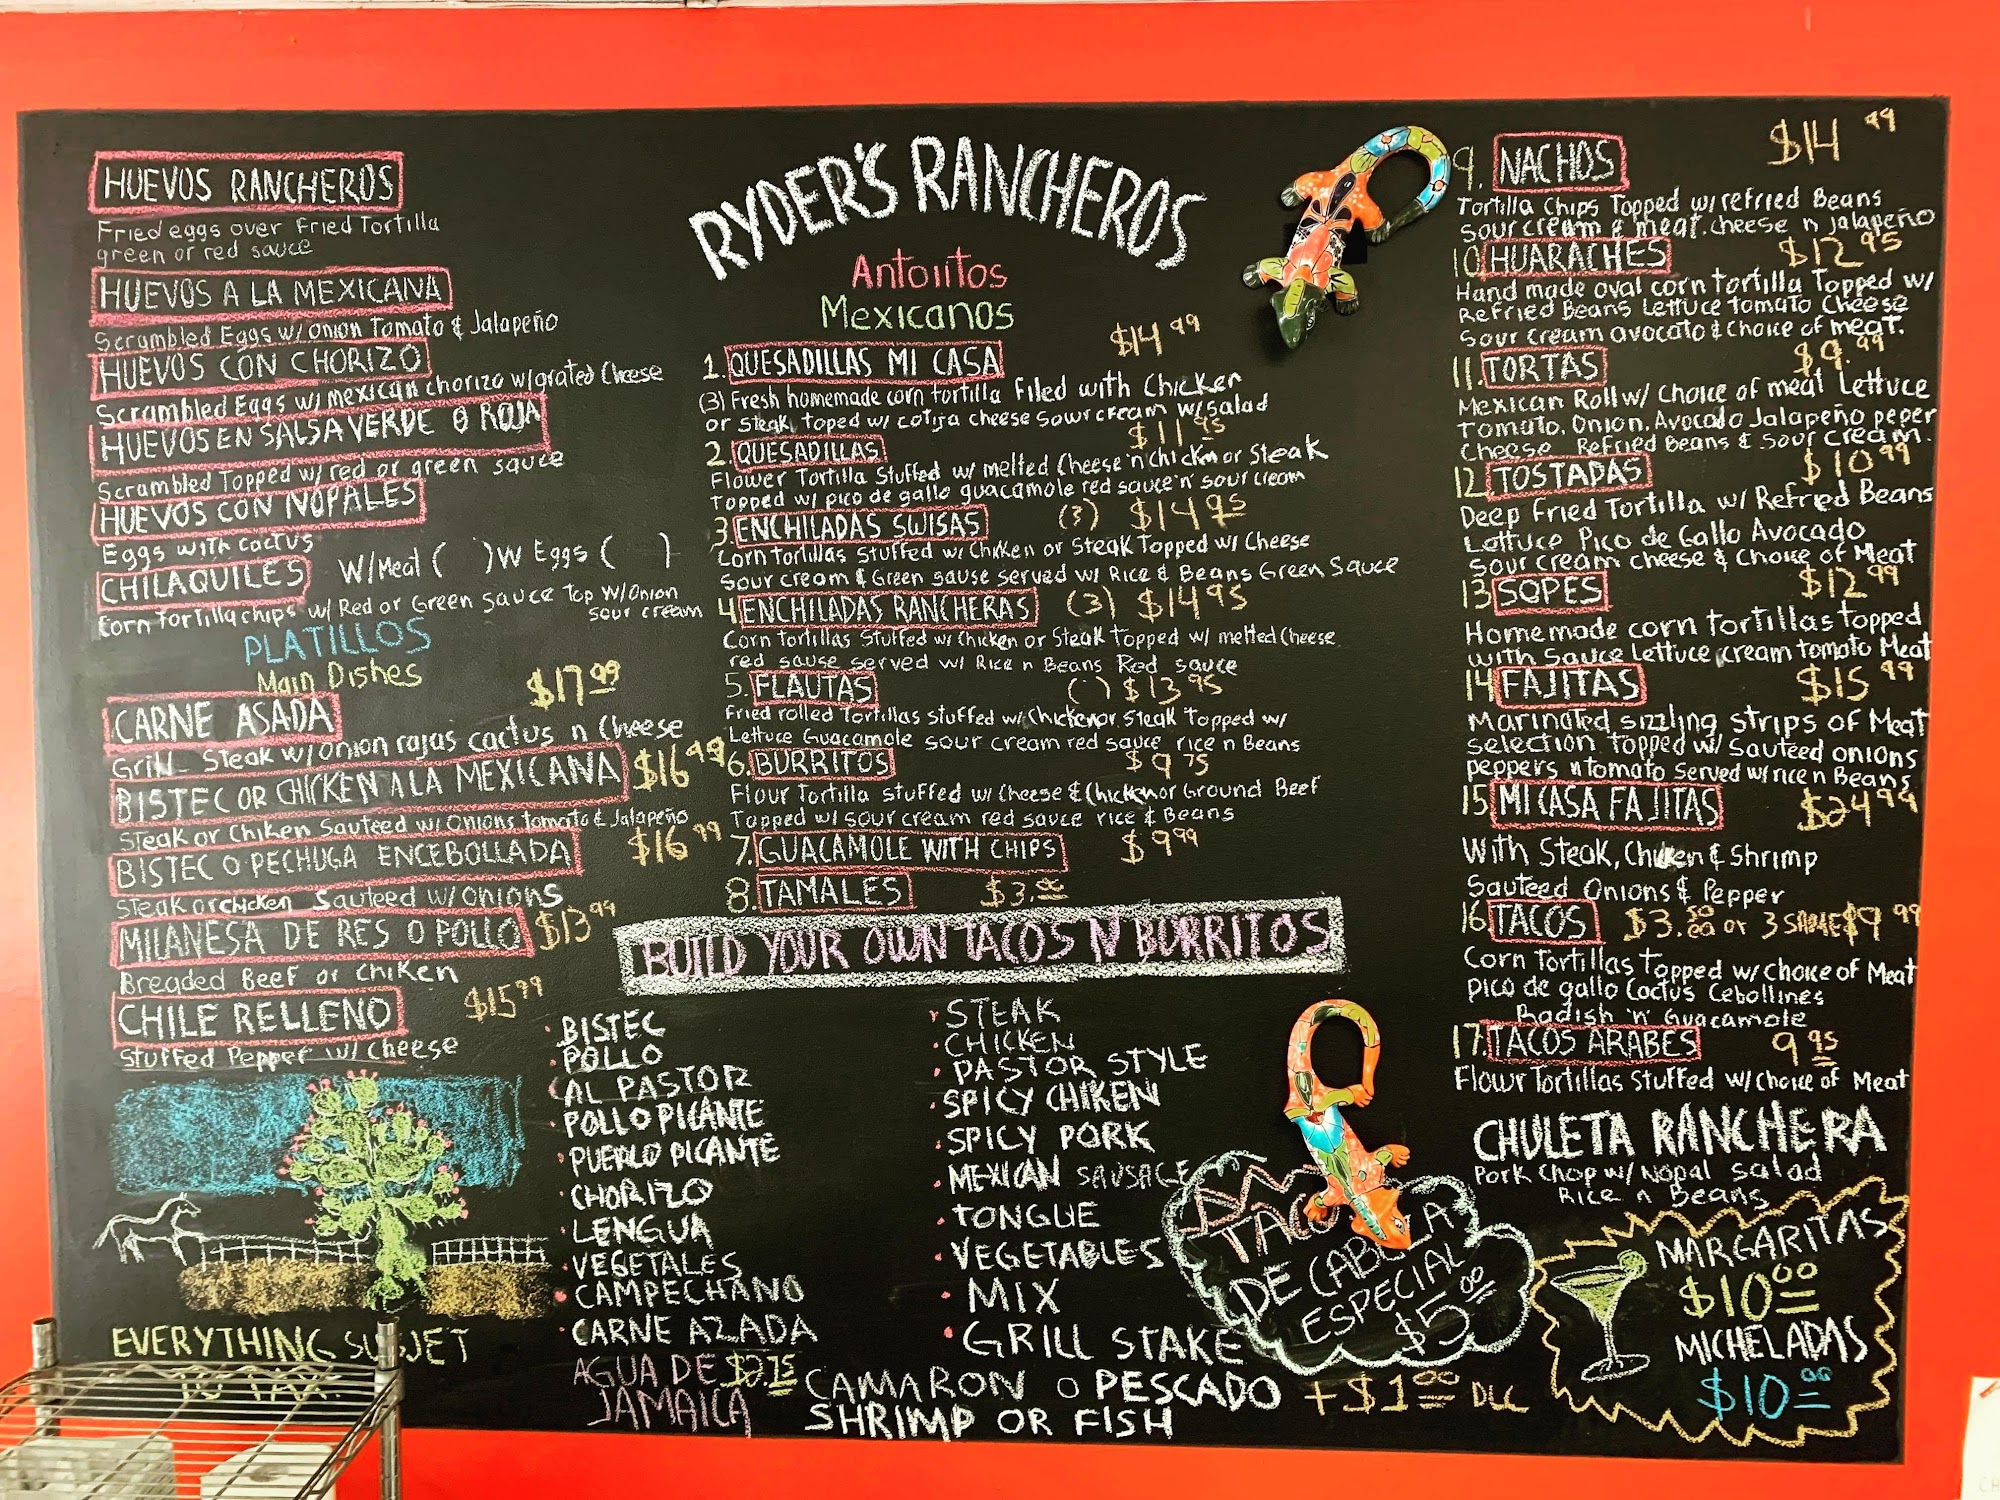 HUEVOS RANCHEROS
Fried eggs over Fried Tortilla
green or red sauce
HUEVOS A LA MEXICANA
Scrambled Eggs w/ onion Tomato & Jalapeño
HUEVOS CON CHORIZO
Scrambled Eggs w/ mexican chorizo w/grated Cheese
HUEVOS EN SALSA VERDE O ROJA
Scrambled Topped w/ red or green sauce
HUEVOS CON NOPALES
Eggs with cactus
CHILAQUILES W/Meat ( ) W Eggs ( )
Corn Tortilla chips w/ Red or Green sauce Top W/Onion
sour cream
PLATILLOS
Main Dishes
CARNE ASADA $17.99
Grill Steak w/ onion rajas cactus n Cheese
BISTEC OR CHICKEN A LA MEXICANA $16.99
Steak or Chiken Sauteed w/ Onions tomato & Jalapeño
BISTEC O PECHUGA ENCEBOLLADA $16.99
Steak or chicken Sauteed w/ ONIONS
MILANESA DE RES O POLLO $13.99
Breaded Beef or Chiken
CHILE RELLENO $15.99
Stuffed Pepper w/ Cheese
EVERYTHING SUBJET
TO TAX
RYDER'S RANCHEROS
Antojitos
Mexicanos
1. QUESADILLAS MI CASA $14.99
(3) Fresh homemade corn tortilla Filed with Chicken
or Steak toped w/ cotija cheese sour cream w/salad
2. QUESADILLAS $11.95
Flower Tortilla Stuffed w/ melted Cheese 'n' Chicken or Steak
Topped w/ pico de gallo guacamole red sauce 'n' sour cream
3. ENCHILADAS SWISAS (3) $14.95
Corn tortillas Stuffed w/ Chicken or Steak Topped w/ Cheese
Sour cream & Green sause served w/ Rice & Beans Green Sauce
4 ENCHILADAS RANCHERAS (3) $14.95
Corn tortillas Stuffed w/ Chicken or Steak topped w/ melted Cheese
red sause served w/ Rice n Beans Red sauce
5. FLAUTAS ( ) $13.95
Fried rolled Tortillas stuffed w/ Chicken or Steak Topped w/
Lettuce Guacamole sour cream red sauce rice n Beans
6. BURRITOS $9.75
Flour Tortilla stuffed w/ Cheese & Chicken or Ground Beef
Topped w/ sour cream red sauce rice & Beans
7. GUACAMOLE WITH CHIPS $9.99
8. TAMALES $3.00
BUILD YOUR OWN TACOS N BURRITOS
· BISTEC
· POLLO
· AL PASTOR
· POLLO PICANTE
· PUERLO PICANTE
· CHORIZO
· LENGUA
· VEGETALES
· CAMPECHANO
· CARNE AZADA
· STEAK
· CHICKEN
· PASTOR STYLE
· SPICY CHIKEN
· SPICY PORK
· MEXICAN SAUSAGE
· TONGUE
· VEGETABLES
· MIX
· GRILL STAKE
AGUA DE $2.75
JAMAICA
CAMARON O PESCADO +$1.00 DLL
SHRIMP OR FISH
TACO
DE CABEZA
ESPECIAL
$5.00
9. NACHOS $14.99
Tortilla Chips Topped w/ refried Beans
sour cream & meat. cheese n jalapeño
10 HUARACHES $12.95
Hand made oval corn tortilla Topped w/
Refried Beans Lettuce tomato Cheese
Sour cream avocato & choice of meat.
11. TORTAS $9.99
Mexican Roll w/ Choice of meat Lettuce
Tomato. Onion. Avocado Jalapeño peper
Cheese Refried Beans & Sour cream.
12. TOSTADAS $10.99
Deep Fried Tortilla w/ Refried Beans
Lettuce Pico de Gallo Avocado
Sour cream cheese & Choice of Meat
13 SOPES $12.99
Homemade corn tortillas topped
with Sauce Lettuce cream tomato Meat
14 FAJITAS $15.99
Marinated sizzling strips of Meat
selection topped w/ Sauteed onions
peppers n tomato served w/ rice n Beans
15 MI CASA FAJITAS $24.99
With Steak, Chicken & Shrimp
Sauteed Onions & Pepper
16 TACOS $3.50 or 3 SAME $9.99
Corn Tortillas topped w/ choice of Meat
pico de gallo Coctus Cebollines
Radish 'n' Guacamole
17. TACOS ARABES 9.95
Flour Tortillas Stuffed w/ choice of Meat
CHULETA RANCHERA
Pork Chop w/ Nopal salad
Rice n Beans
MARGARITAS
$10.00
MICHELADAS
$10.00